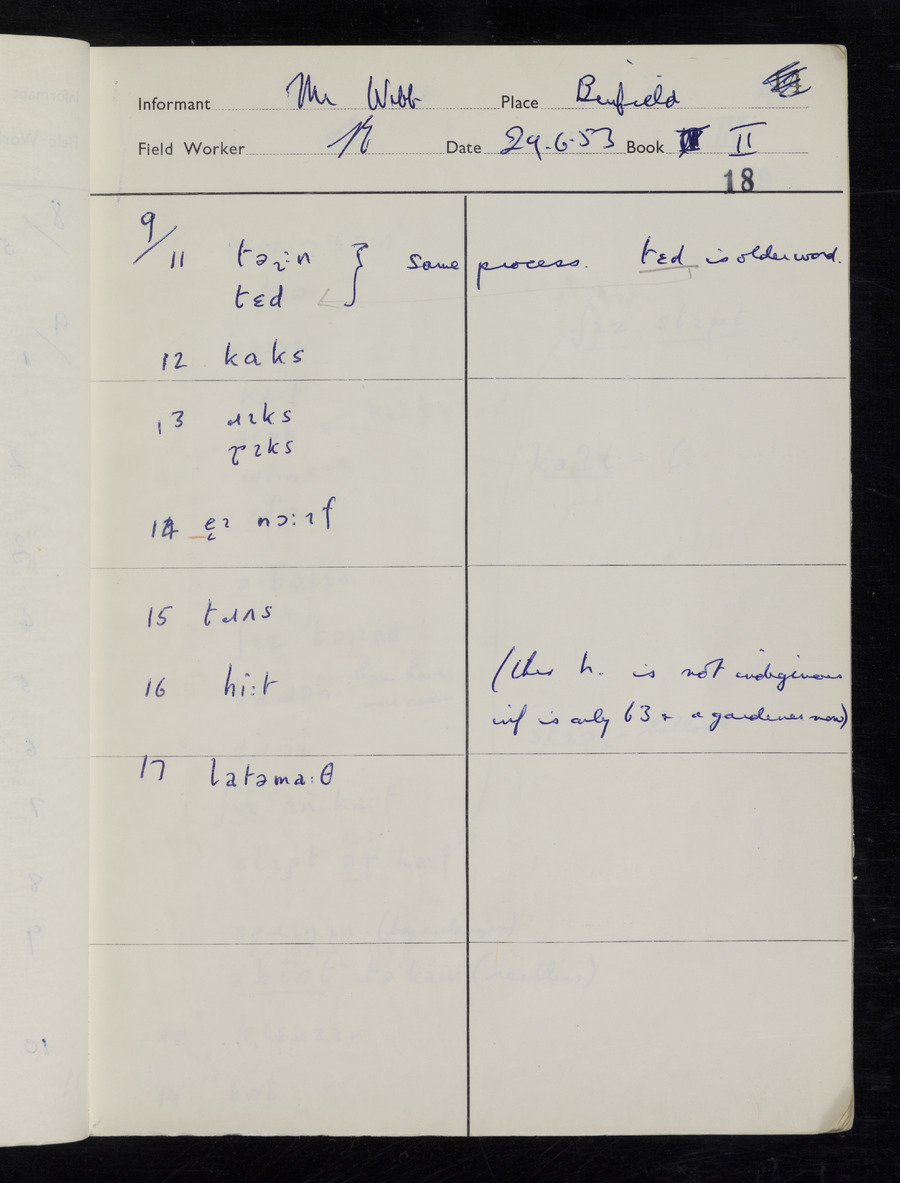 Informant Mr Webb Place Binfield
Field Worker Date 29.6.53 Book II
18
9/
11 təɹ:n } same process. tɛd is older word.
tɛd
12 kaks
13 ɹɪks
14
15 tɹʌns
16 hi:t (this h. is not indigenous
inf is only 63 & a gardener now)
17 latəma:θ